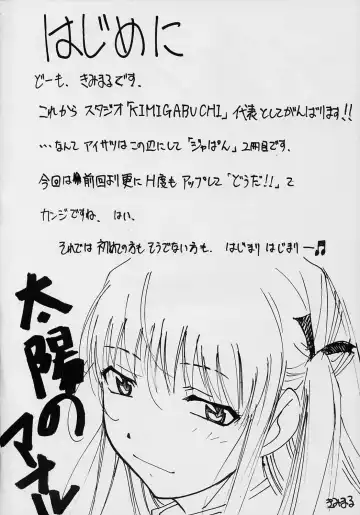 はじめに
どーも、きみまるです。
これから スタジオ「KIMIGABUCHI」代表としてがんばります!!
…なんて アイサツはこの辺にして「ジャぱん」2冊目です。
今回は前回より更に H度も アップして「どうだ!!」て
カンジですね、はい。
それでは 初めての方も そうでない方も、はじまり はじまりー♫
太陽の
マナル
きみまる